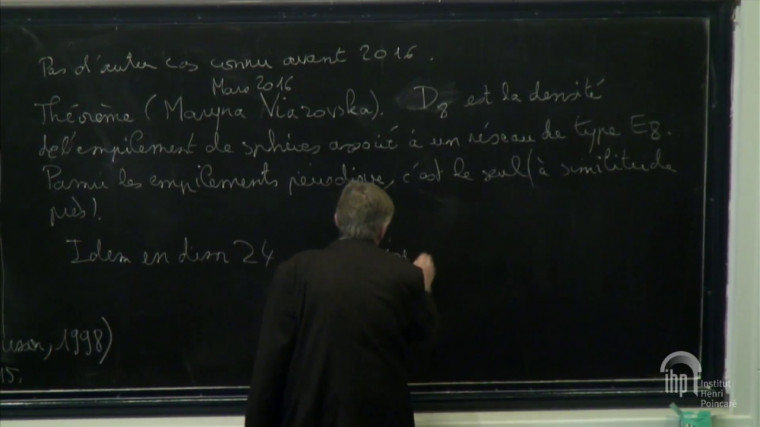 Pas d'autre cas connu avant 2016.
Mars 2016
Théorème (Maryna Viazovska). D8 est la densité
de l'empilement de sphères associé à un réseau de type E8.
Parmi les empilements périodiques, c'est le seul (à similitude
près).
Idem en dim 24
, 1998)
15.
ihp Institut
Henri
Poincaré